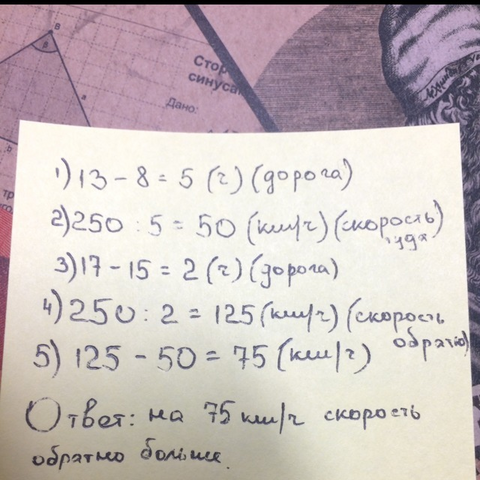 B
Стор
синуса
Дано:
1) 13 - 8 = 5 (ч) (дорога)
2) 250 : 5 = 50 (км/ч) (скорость туда)
3) 17 - 15 = 2 (ч) (дорога)
4) 250 : 2 = 125 (км/ч) (скорость обратно)
5) 125 - 50 = 75 (км/ч)
Ответ: на 75 км/ч скорость
обратно больше.